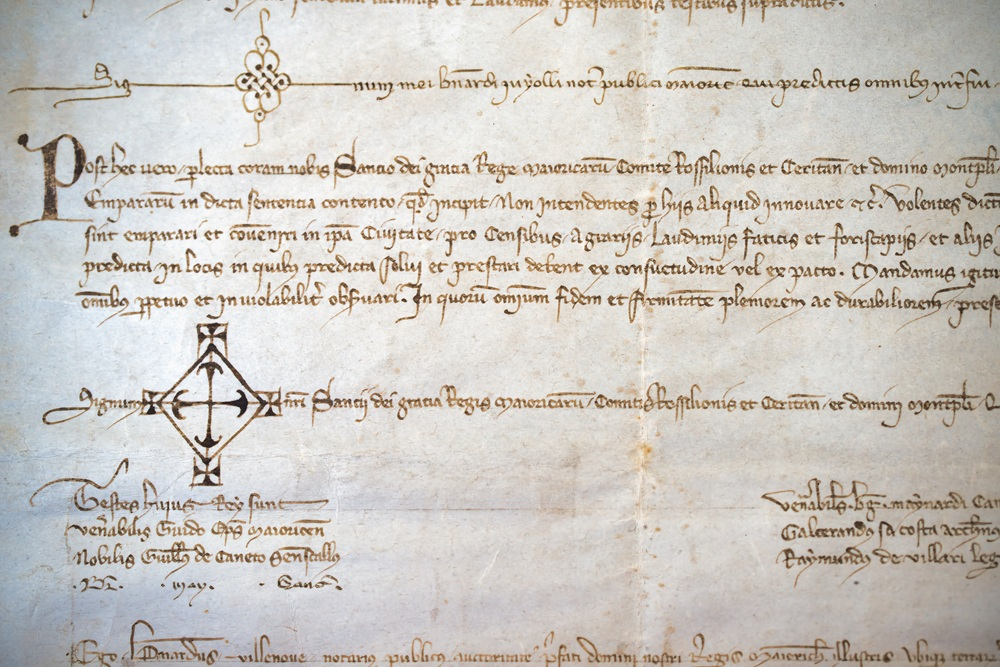 et Laudamo presentibus testibus supradictis.
Sig num mei bnardi not publici maioric qui predictis omnibus int fui
Post hec vero plecta coram nobis Sancio dei gracia Rege maioricarū Comite Rossilionis et Ceritan et domino montpli
Empararū in dicta sentencia contento qd Incipit Non Intendentes p hiis aliquid innovare etc. Volentes dict
sint emparari et coveniri in ipa Civitate pro Censibus agrariis Laudimiis faticis et foriscapiis et aliis
predicta in locis in quibz predicta solui et prestari debent ex consuetudine vel ex pacto. Mandamus igitur
omibus ppetuo et Inviolabilit obsuari. In quorū omium fidem et firmitate pleniorem ac durabiliorem prese
Signum nri Sancii dei gracia Regis maioricarū Comitis Rossilionis et Ceritan et domini montpli
Testes huius Rey sunt
venabilis Guido Eps maioricen
Nobilis Guillm de Caneto
may.
venabil. bg. maynardi Ca
Galcerandus sa costa
Raymundus de villari leg
Ego bnardus villenove notarius publicus auctoritate pfati domini nostri Regis maioric illustris